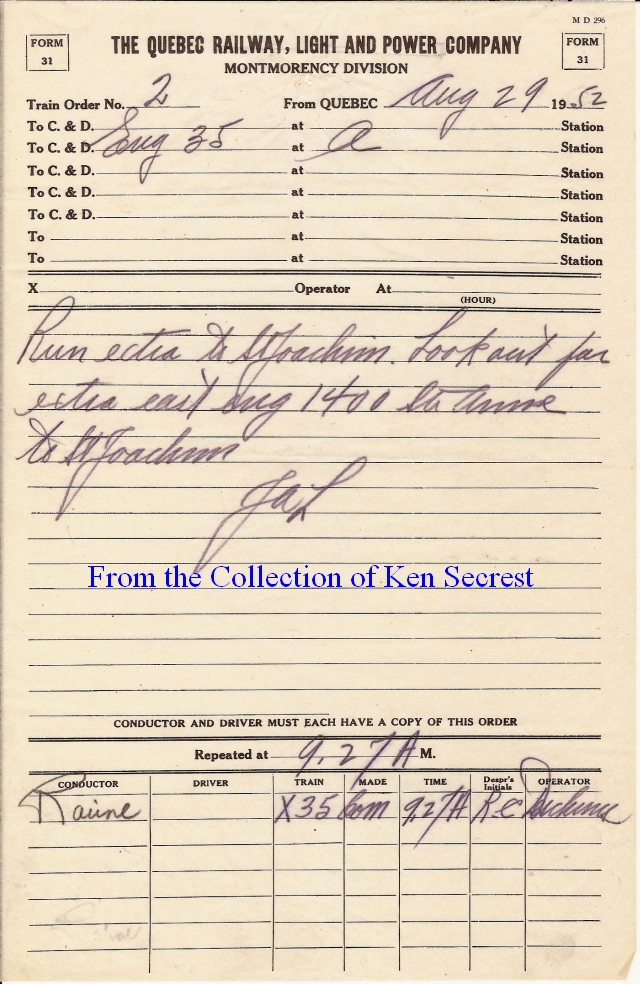 M D 296
FORM 31
THE QUEBEC RAILWAY, LIGHT AND POWER COMPANY
FORM 31
MONTMORENCY DIVISION
Train Order No. 2 From QUEBEC Aug 29 1952
To C. & D. at Station
To C. & D. Eng 35 at a Station
To C. & D. at Station
To C. & D. at Station
To C. & D. at Station
To at Station
To at Station
X Operator At
(HOUR)
Run extra to St Joachim. Look out for
extra east Eng 1400 Ste Anne
to St Joachim
JAL
From the Collection of Ken Secrest
CONDUCTOR AND DRIVER MUST EACH HAVE A COPY OF THIS ORDER
Repeated at 9.27A M.
CONDUCTOR DRIVER TRAIN MADE TIME Despr's Initials OPERATOR
X35 Com 9.27A RC